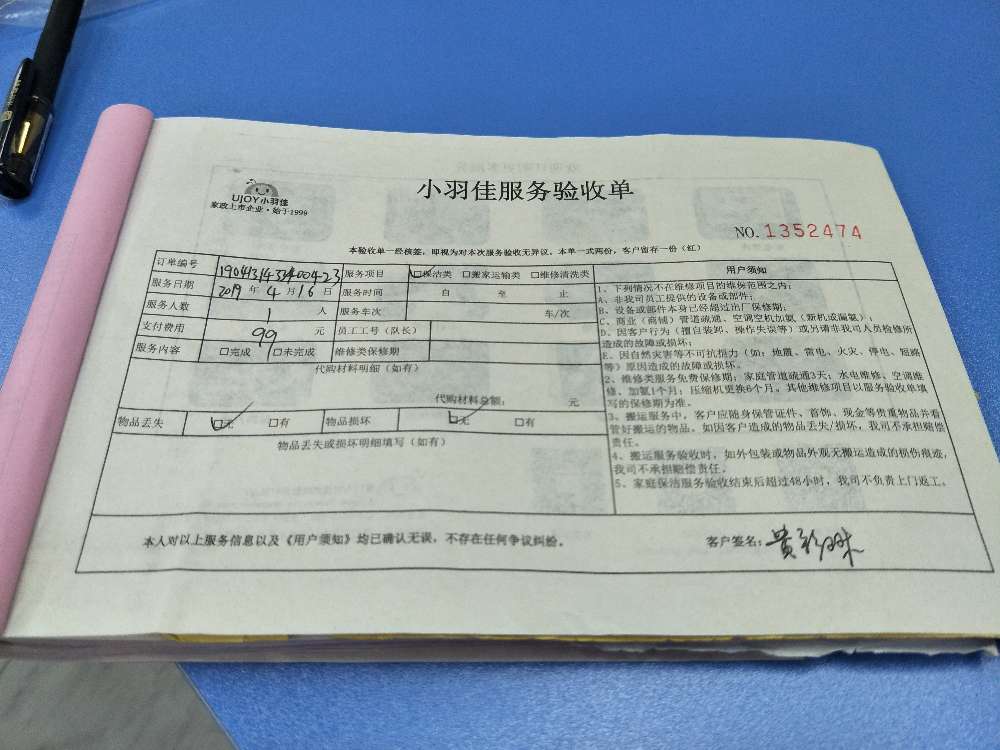 UJOY小羽佳
家政上市企业·始于1999
小羽佳服务验收单
NO. 1352474
本验收单一经核签，即视为对本次服务验收无异议，本单一式两份，客户留存一份（红）
订单编号 服务项目 □保洁类 □搬家运输类 □维修清洗类
服务日期 2019 年 4 月 16 日 服务时间 自 至 止
服务人数 1 人 服务车次 车/次
支付费用 99 元 员工工号（队长）
服务内容 □完成 □未完成 维修类保修期
代购材料明细（如有）
代购材料总额： 元
物品丢失 □无 □有 物品损坏 □无 □有
物品丢失或损坏明细填写（如有）
用户须知
1、下列情况不在维修项目的维保范围之内：
A、非我司员工提供的设备或部件；
B、设备或部件本身已经超过出厂保修期；
C、商业（商铺）管道疏通、空调空机加氨（新机或漏氨）；
D、因客户行为（擅自装卸、操作失误等）或另请非我司人员检修所
造成的故障或损坏；
E、因自然灾害等不可抗拒力（如：地震、雷电、火灾、停电、短路
等）原因造成的故障或损坏。
2、维修类服务免费保修期：家庭管道疏通3天；水电维修、空调维
修、加氨1个月；压缩机更换6个月。其他维修项目以服务验收单填
写的保修期为准。
3、搬运服务中，客户应随身保管证件、首饰、现金等贵重物品并看
管好搬运的物品。如因客户造成的物品丢失/损坏，我司不承担赔偿
责任。
4、搬运服务验收时，如外包装或物品外观无搬运造成的损伤痕迹，
我司不承担赔偿责任。
5、家庭保洁服务验收结束后超过48小时，我司不负责上门返工。
本人对以上服务信息以及《用户须知》均已确认无误，不存在任何争议纠纷。
客户签名：